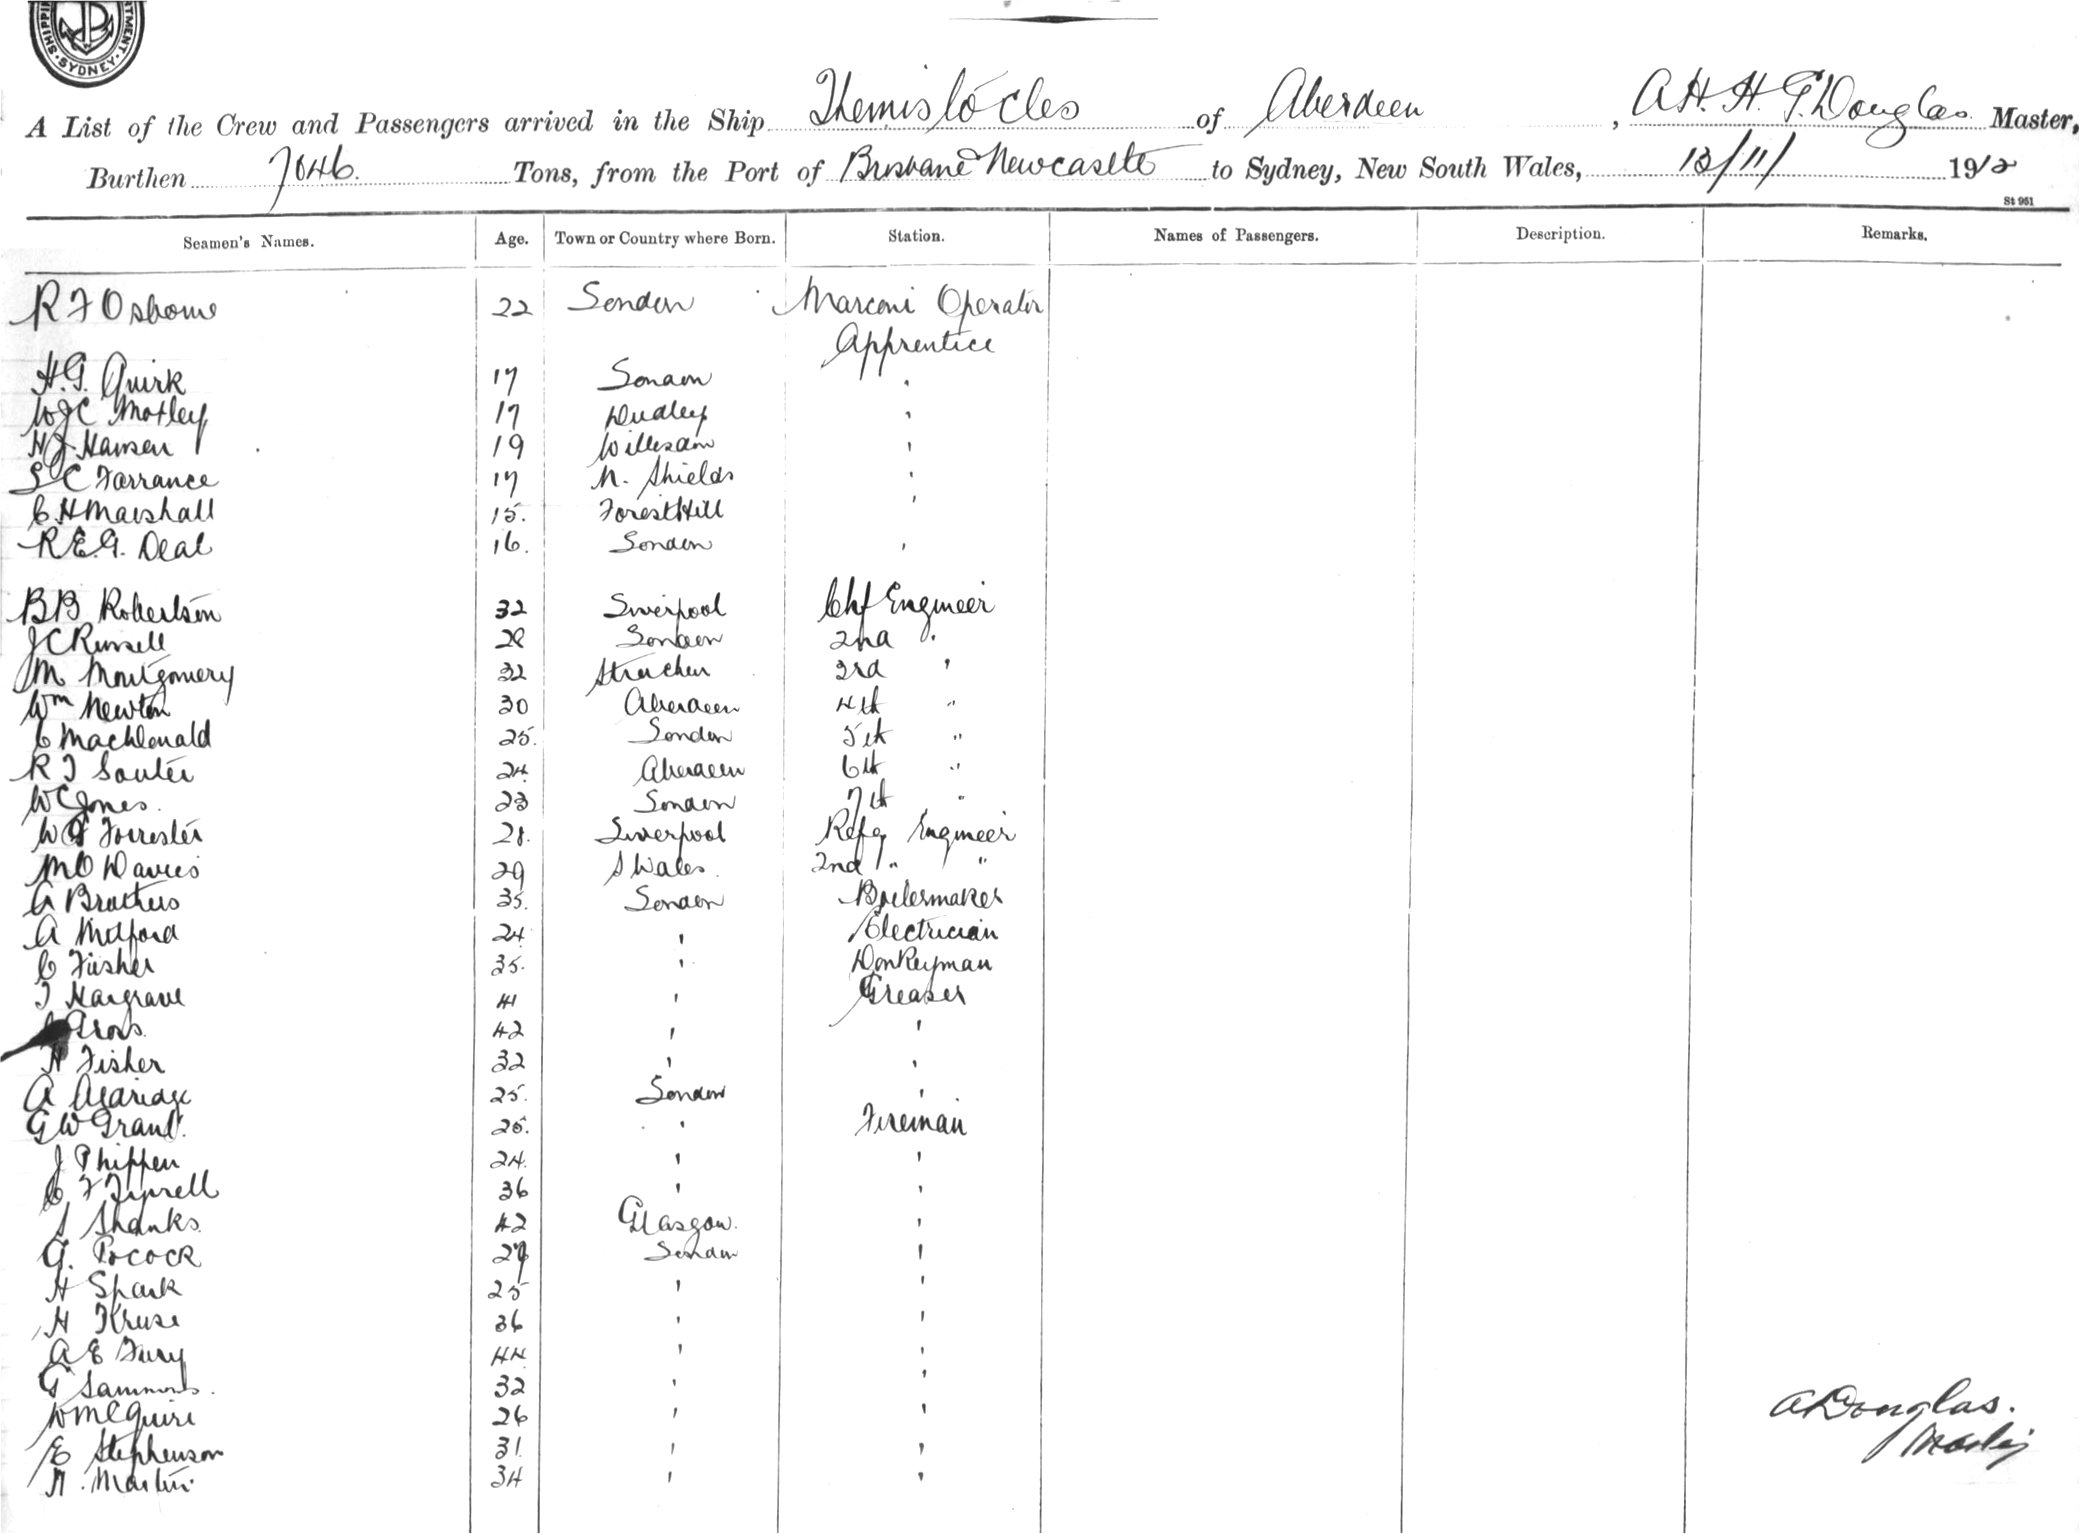 SHIPPING DEPARTMENT. SYDNEY.
A List of the Crew and Passengers arrived in the Ship Themistocles of Aberdeen, A H. H. G. Douglas Master,
Burthen 7046. Tons, from the Port of Brisbane Newcastle to Sydney, New South Wales, 13/11/ 1912
St 961
Seamen's Names. Age. Town or Country where Born. Station. Names of Passengers. Description. Remarks.
R F Osborne 22 London Marconi Operator
Apprentice
H. G. Quirk 17 London "
W J C Motley 17 Dudley "
H J Hansen 19 Willesden "
S C Farrance 17 N. Shields "
C H Marshall 15. Forest Hill "
R. E. G. Deal 16. London "
B B Robertson 32 Liverpool Chf Engineer
J C Russell 28 London 2nd "
M Montgomery 32 Strachan 3rd "
Wm Newton 30 Aberdeen 4th "
C MacDonald 25. London 5th "
R T Souter 24. Aberdeen 6th "
W C Jones. 23 London 7th "
W Forrester 28. Liverpool Refg Engineer
M O Davies 29 S Wales. 2nd " "
A Brothers 35. London Boilermaker
A Milford 24. " Electrician
C Fisher 35. " Donkeyman
T Hargrave 41 " Greaser
Gross. 42 " "
H Fisher 32 " "
A Aldridge 25. London "
G W Grant. 25. " Fireman
J Phippen 24. " "
C F Tyrrell 36 " "
S Shanks. 42 Glasgow. "
G. Pocock 27 London "
H Spark 25 " "
H Kruse 36 " "
A E Fury 44. " "
G Sammons. 32 " "
W McGuire 26 " "
E Stephenson 31. " "
H. Martin. 34 " "
A Douglas.
Master